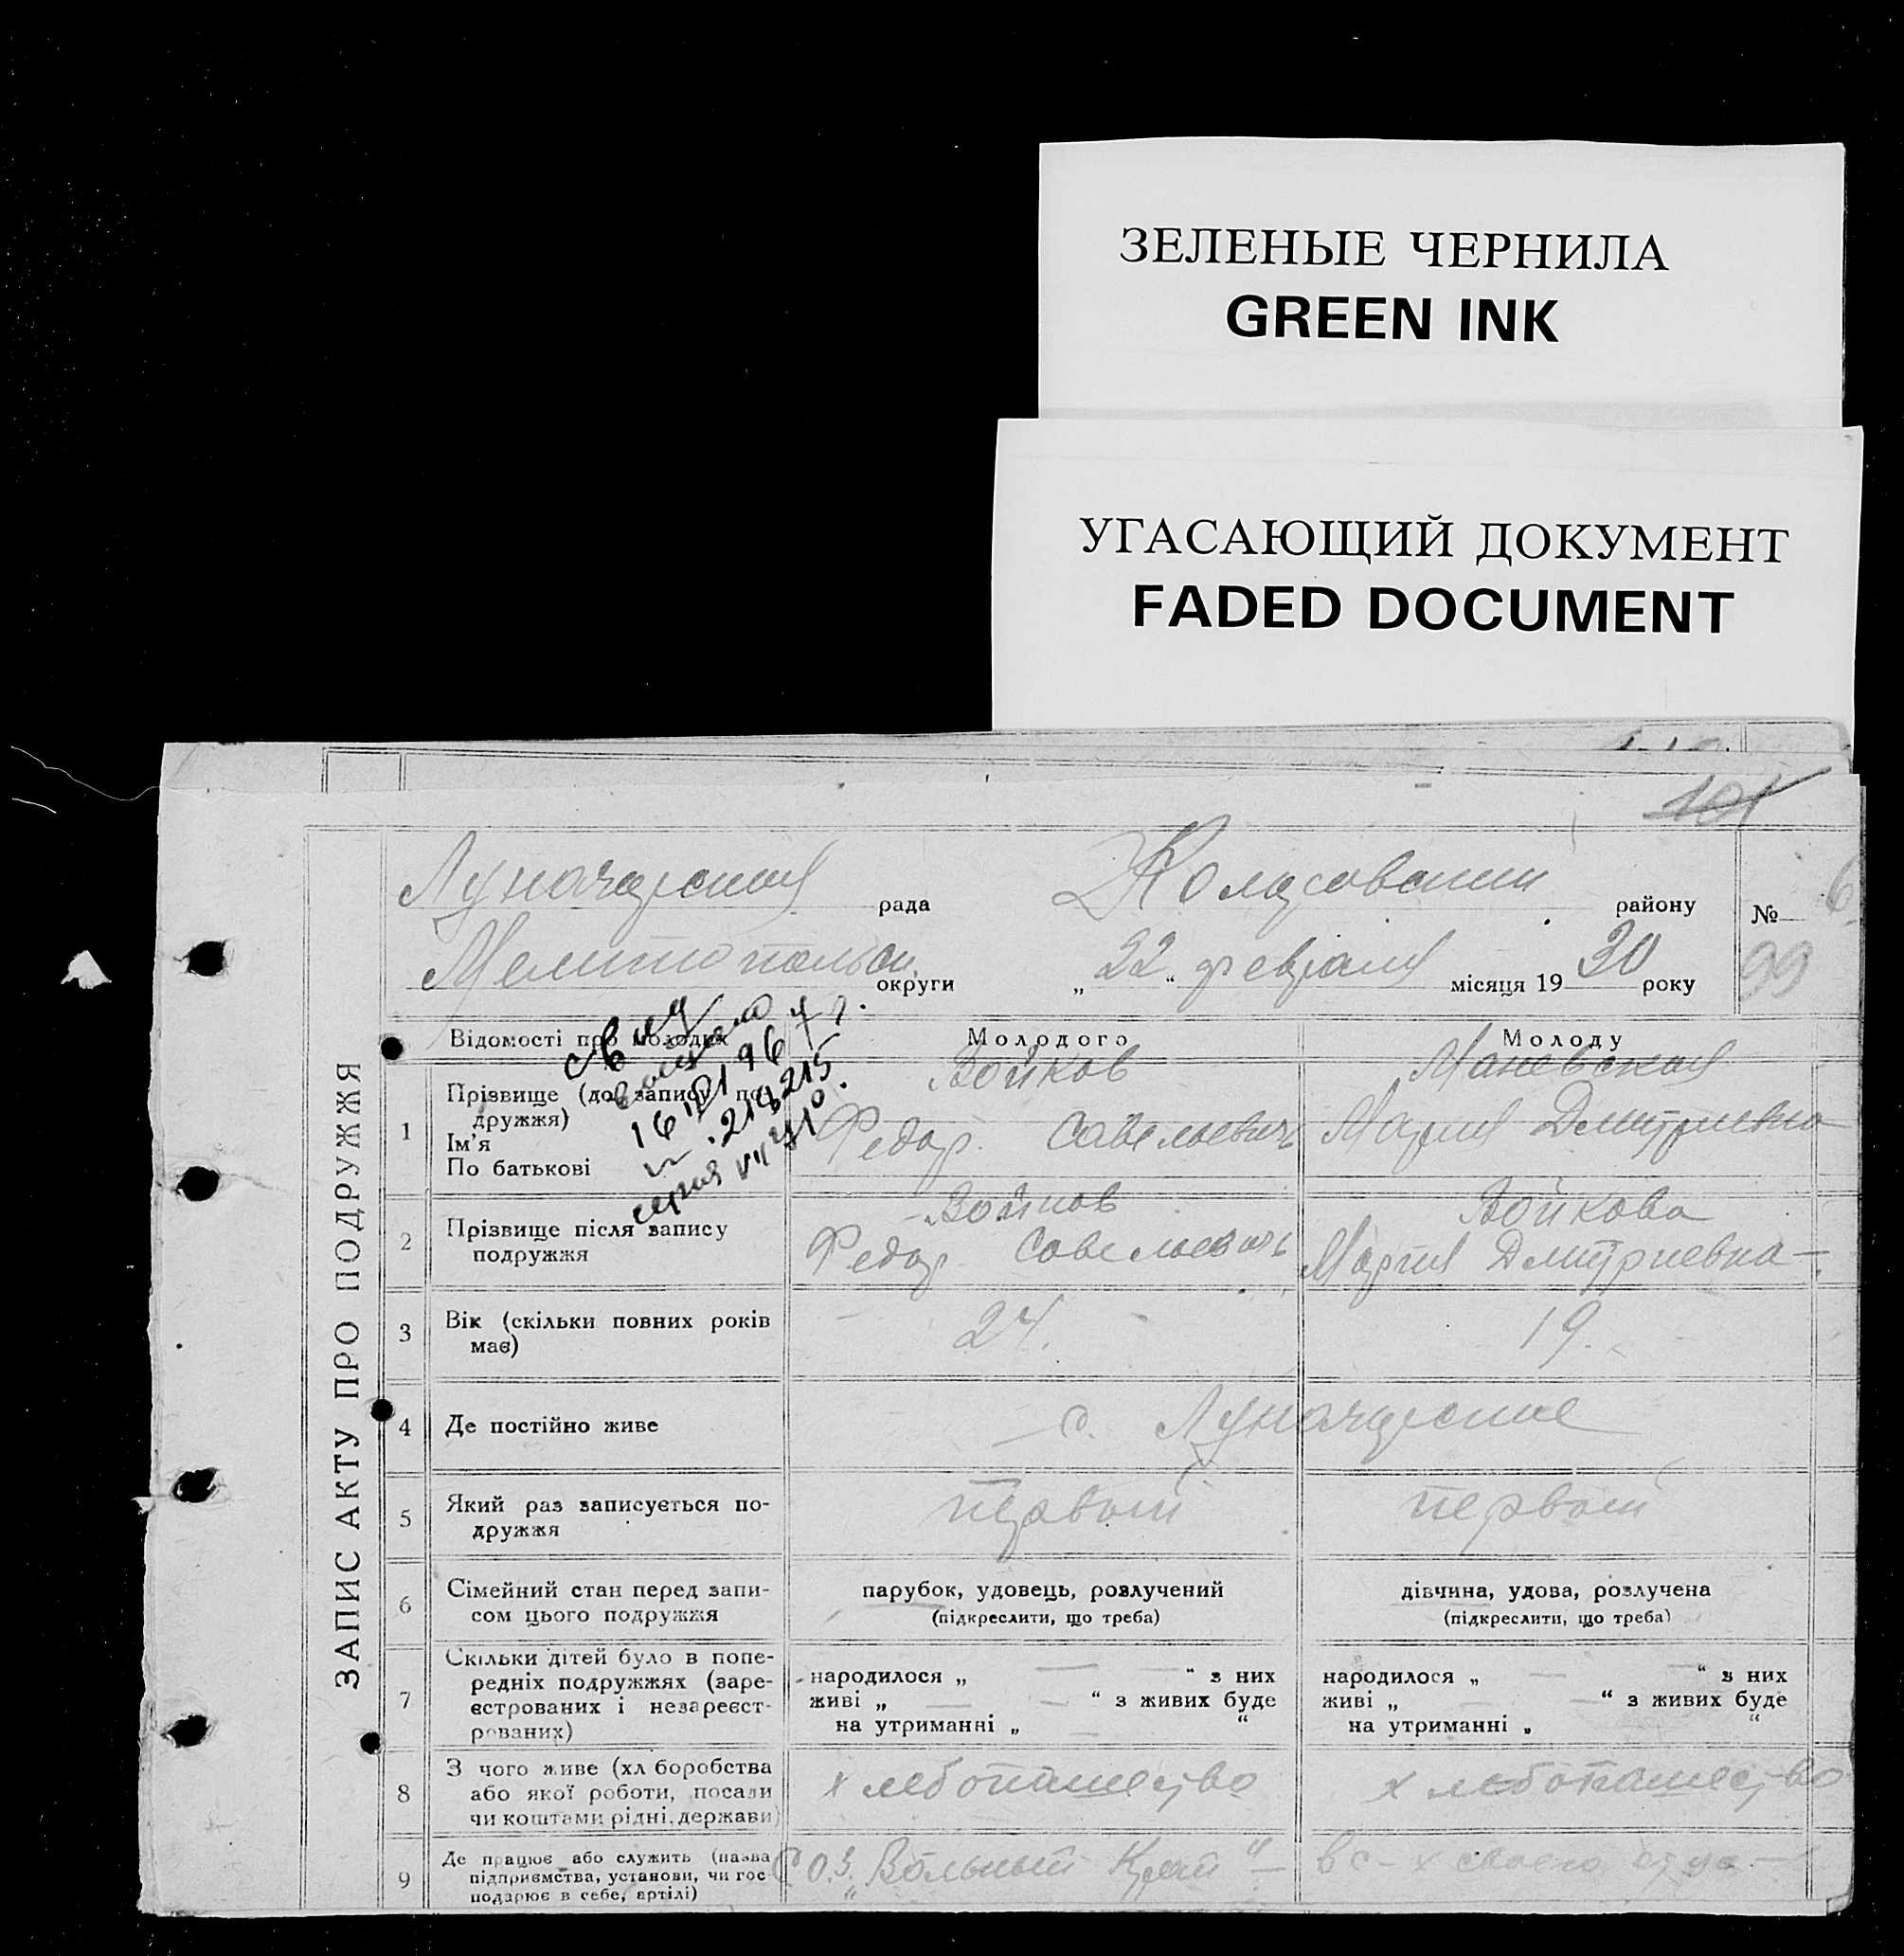 ЗЕЛЕНЫЕ ЧЕРНИЛА
GREEN INK
УГАСАЮЩИЙ ДОКУМЕНТ
FADED DOCUMENT
101
ЗАПИС АКТУ ПРО ПОДРУЖЖЯ
Луначарская рада району № 6
Мелитопольск. округи „22“ февраля місяця 1930 року 99
Відомості про молодих Молодого Молоду
1 Прізвище (до запису подружжя) Войков Маневская
Ім'я
По батькові Федор Савельевичь Мария Дмитриевна
16 1967 г.
218215
серия
2 Прізвище після запису подружжя Войков Войкова
Федор Савельевичь Мария Дмитриевна
3 Вік (скільки повних років має) 24. 19.
4 Де постійно живе с. Луначарское
5 Який раз записується подружжя первый первый
6 Сімейний стан перед записом цього подружжя парубок, удовець, розлучений дівчина, удова, розлучена
(підкреслити, що треба) (підкреслити, що треба)
7 Скільки дітей було в попередніх подружжях (зареєстрованих і незареєстрованих) народилося „ — “ з них народилося „ — “ з них
живі „ — “ з живих буде живі „ — “ з живих буде
на утриманні „ — “ на утриманні „ “
8 З чого живе (хліборобства або якої роботи, посади чи коштами рідні, держави) хлебопашество хлебопашество
9 Де працює або служить (назва підприємства, установи, чи господарює в себе, артілі) С.О.З. „Вольный Край“ в с-х своего отца